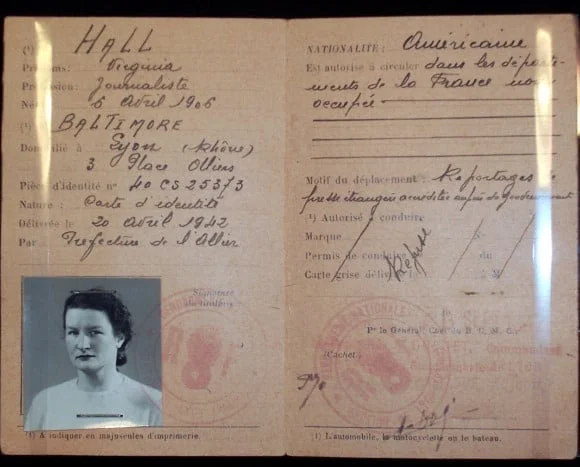 (1) HALL
Prénoms: Virginia
Profession: Journaliste
Né 6 Avril 1906
(1) BALTIMORE
Domicilié à Lyon (Rhône)
3 Place Olliers
Pièce d'identité n° 40 CS 25373
Nature: Carte d'identité
Délivrée le 20 avril 1942
Par Préfecture de l'Allier
Signature
du titulaire
(1) A indiquer en majuscules d'imprimerie.
NATIONALITÉ: Américaine
Est autorisé à circuler dans les départe-
ments de la France non
occupée.
Motif du déplacement: Reportages de
presse étrangère accréditée auprès du Gouvernement
(1) Autorisé à conduire
Marque
Permis de conduire du
Carte grise délivré
Refusé
Pr le Général,
(Cachet)
(1) L'automobile, la motocyclette ou le bateau.